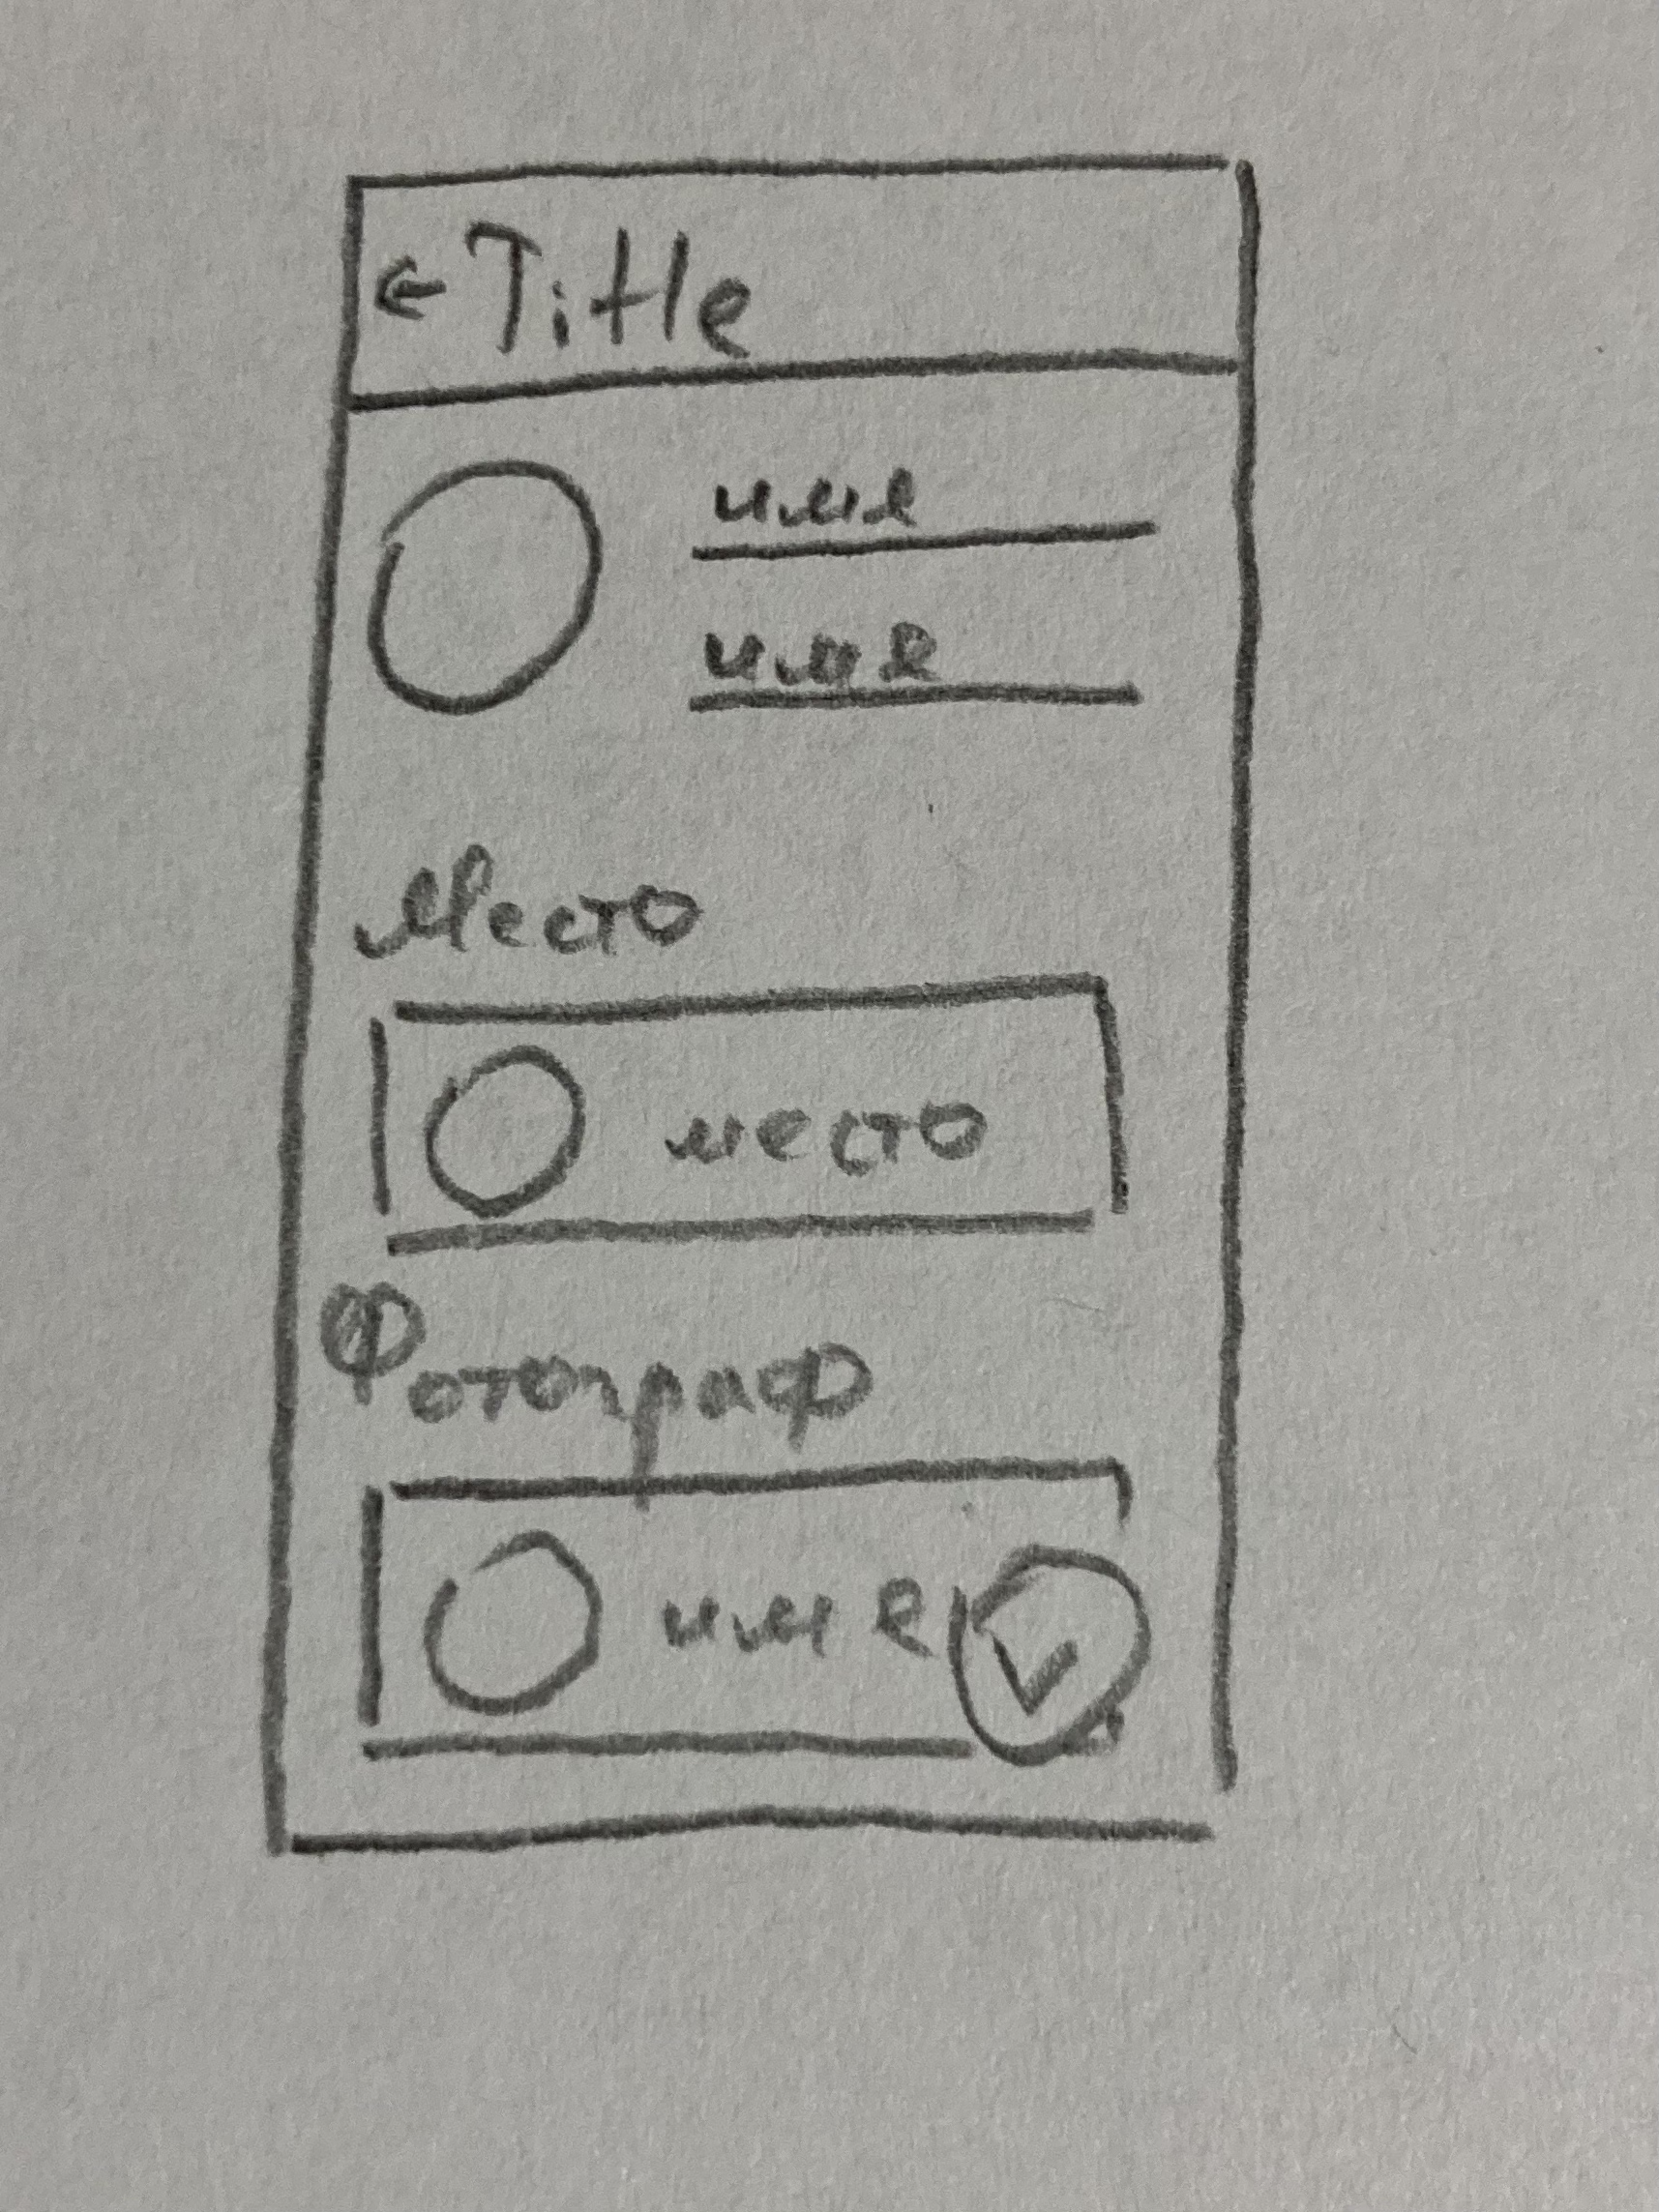 ← Title
имя
имя
Место
место
Фотограф
имя